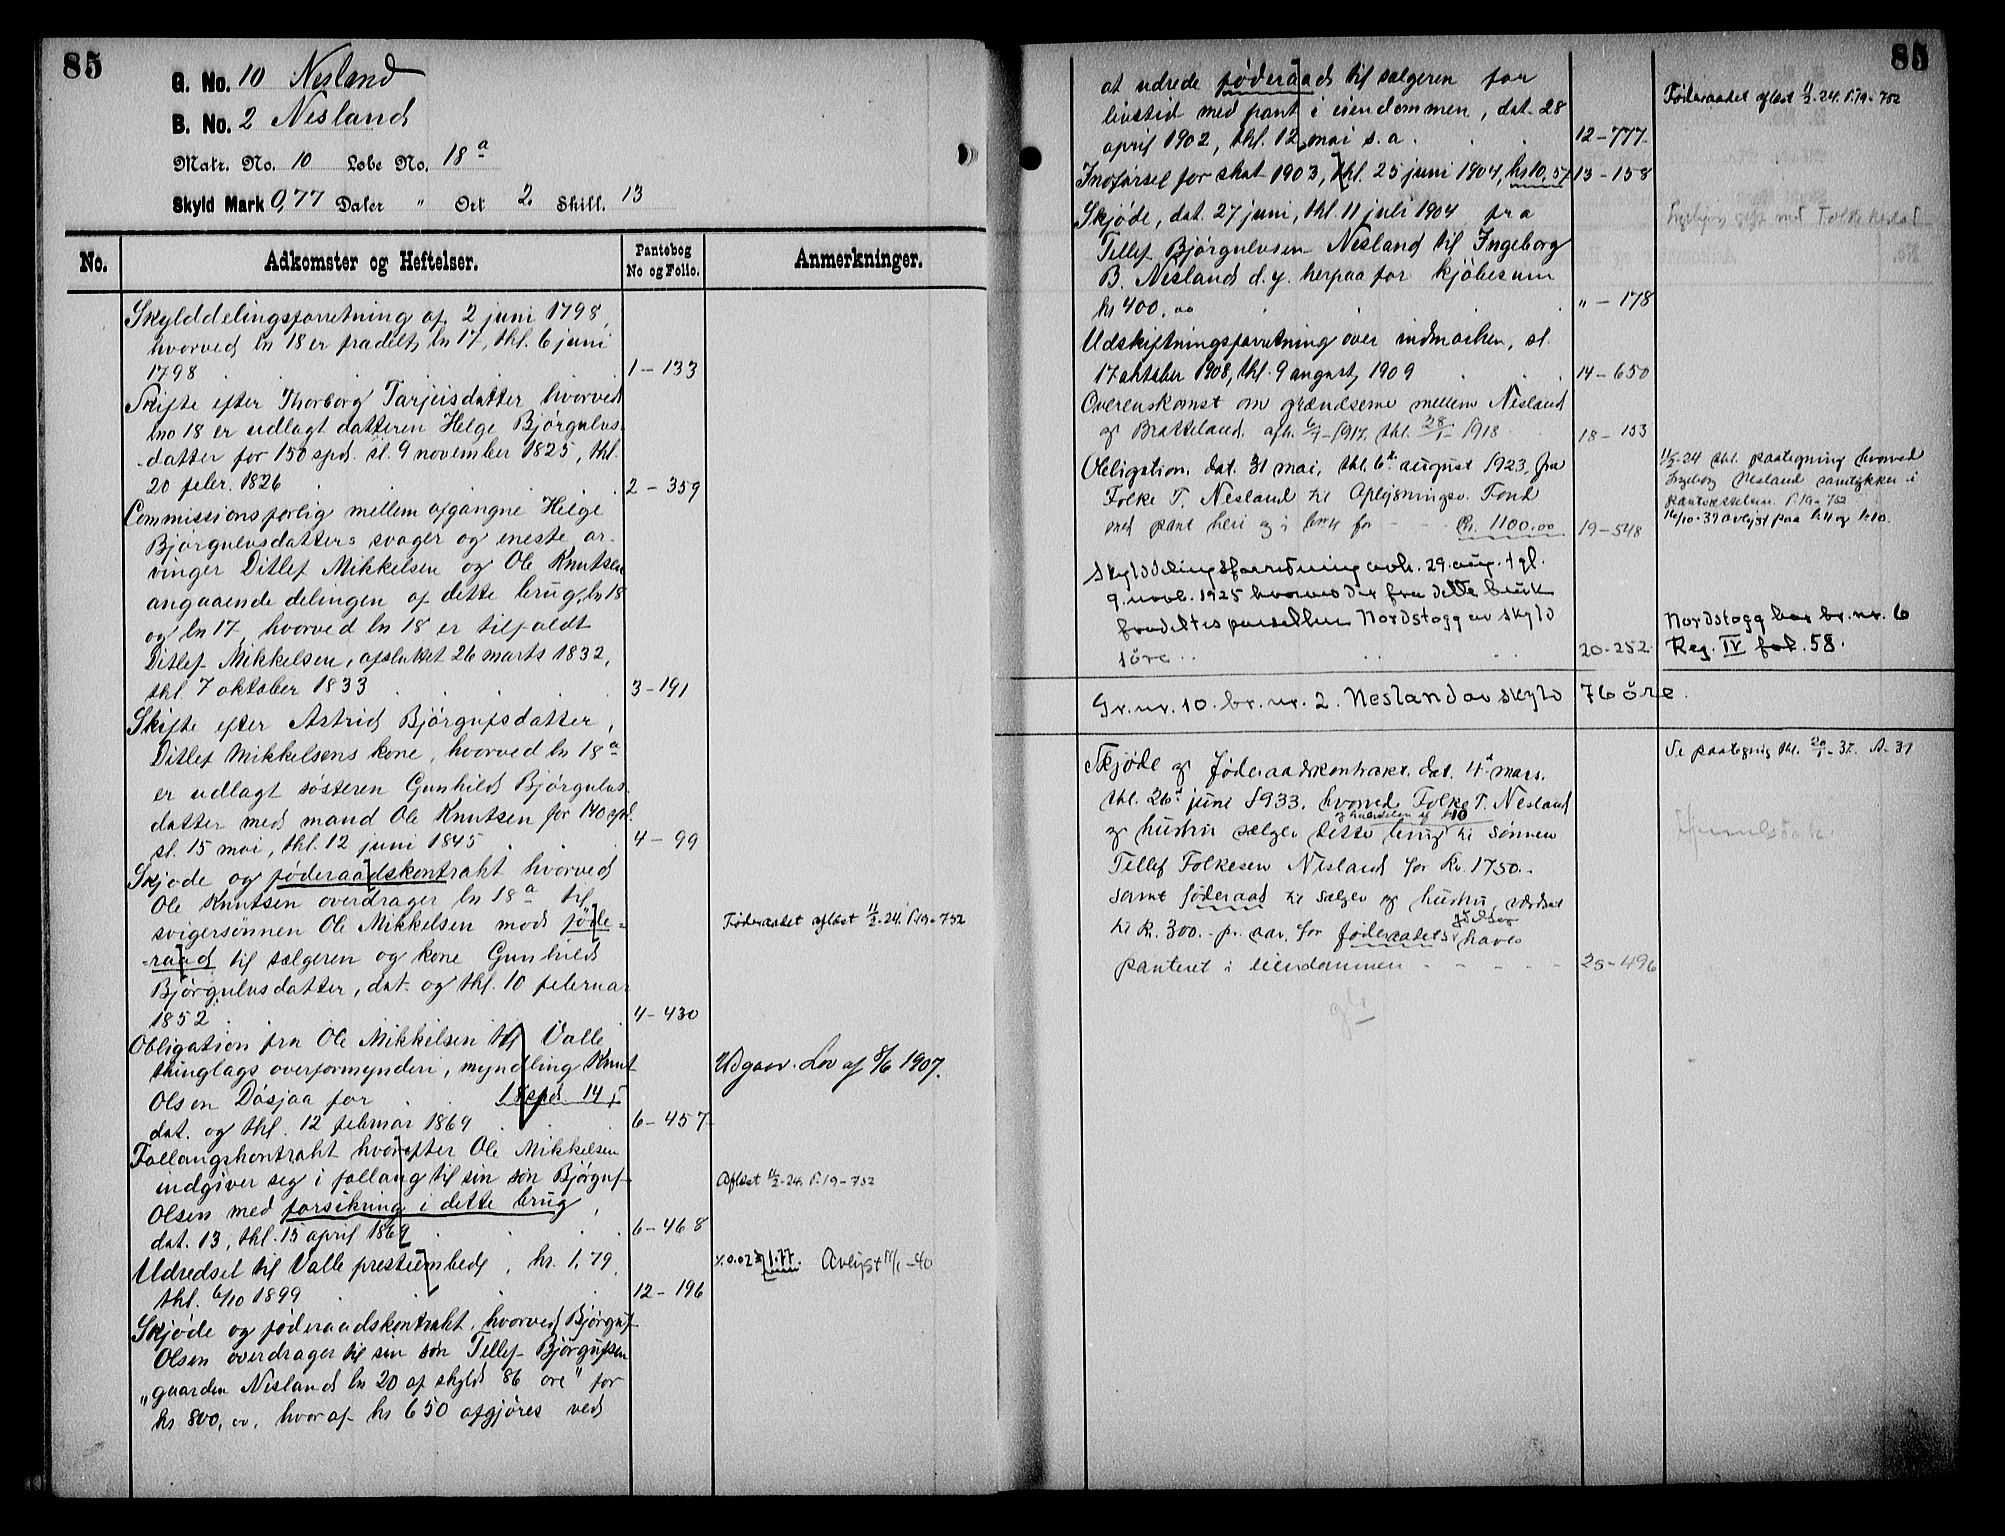 85
G. No. 10 Nesland
B. No. 2 Nesland
Matr. No. 10 Løbe No. 18 a
Skyld Mark 0,77 Daler " Ort 2 Skill. 13
No.
Adkomster og Heftelser.
Pantebog
No og Folio.
Anmerkninger.
Skylddelingsforretning af 2 juni 1798,
hvorved ln 18 er fradelt ln 17, thl. 6 juni
1798 . 1 - 133
Skifte efter Thorborg Tarjeisdatter hvorved
lno 18 er udlagt datteren Helge Bjørgulvs-
datter for 150 spd. sl. 9 november 1825, thl.
20 febr. 1826 . 2 - 359
Commissionsforlig mellem afgangne Helge
Bjørgulvsdatters svoger og eneste ar-
vinger Ditlef Mikkelsen og Ole Knutsen
angaaende delingen af dette brug, ln 18
og ln 17, hvorved ln 18 er tilfaldt
Ditlef Mikkelsen, afsluttet 26 marts 1832,
thl. 7 oktober 1833 . 3 - 191
Skifte efter Astrid Bjørgufsdatter,
Ditlef Mikkelsens kone, hvorved ln 18 a
er udlagt søsteren Gunhild Bjørgulvs-
datter med mand Ole Knutsen for 140 spd.
sl. 15 mai, thl. 12 juni 1845 . 4 - 99
Skjøde og føderaadskontrakt hvorved
Ole Knutsen overdrager ln 18 a til
svigersønnen Ole Mikkelsen mod føde-
-raad til sælgeren og kone Gunhild
Bjørgulvsdatter, dat. og thl. 10 februar
1852 . 4 - 430
Føderaadet aflæst 11/2-24. P. 19 - 752
Obligation fra Ole Mikkelsen til Valle
thinglags overformynderi, myndling Knut
Olsen Dåsjaa for 18 spd. 14 s
dat. og thl. 12 februar 1864 . 6 - 457
Udgaar. Lov af 8/6 1907.
Follangskontrakt hvorefter Ole Mikkelsen
indgiver seg i follaug til sin søn Bjørguf
Olsen med forsikring i dette brug,
dat. 13, thl. 15 april 1869 . 6 - 468
Aflæst 11/2-24. P. 19 - 752
Udredsel til Valle prestiembede, kr. 1,79,
thl. 6/10 1899 . 12 - 196
1.77. Avlyst 17/1 - 40
Skjøde og føderaadskontrakt, hvorved Bjørguf
Olsen overdrager til sin søn Tellef Bjørgufsen
"gaarden Nesland ln 20 af skyld 86 øre" for
kr 800,oo, hvoraf kr 650 afgjøres ved
85
at udrede føderaad til sælgeren for
livstid med pant i eiendommen, dat. 28
april 1902, thl. 12 mai s.a. 12 - 777
Føderaadet aflæst 11/2-24. P. 19 - 752
Indførsel for skat 1903, thl. 25 juni 1904, kr 10,57 13 - 158
Skjøde, dat. 27 juni, thl. 11 juli 1904 fra
Tellef Bjørgulvsen Nesland til Ingeborg
B. Nesland d.y. herpaa for kjøbesum
kr 400.oo " - 178
Ingebjørg gift med Folke Nesland
Udskiftningsforretning over indmarken, sl.
17 oktober 1908, thl. 9 august 1909 14 - 650
Overenskomst om grændserne mellem Nesland
og Bratteland. afh. 6/7 - 1917, thl. 28/1 - 1918 18 - 153
Obligation, dat. 31 mai, thl. 6te august 1923, fra
Folke T. Nesland til Oplysningsv. Fond
med pant heri og i br 4 for Kr. 1100.oo 19 - 548
11/2-24 thl. paategning hvorved
Ingeborg Nesland samtykker i
pantsættelsen P. 19 - 752
16/10-39 avlyst paa b. 4 og b. 10.
Skylddelingsforretning avh. 29. aug. tgl.
9. novb. 1925 hvorved der fra dette bruk
fradeltes parsellen Nordstogg av skyld
1 øre .. 20 - 252.
Nordstogg har br. nr. 6
Reg. IV fol. 58.
Gr. nr. 10. br. nr. 2. Nesland av skyld 76 øre.
Skjøde og føderaadskontrakt, dat. 4de mars.
thl. 26de juni 1933, hvorved Folke T. Nesland
og halvdelen af b 10
og hustru sælger dette brug til sønnen
Tellef Folkesen Nesland for Kr. 1750.-
samt føderaad til sælger og hustru, værdsat
til Kr. 300.- pr. aar, for føderaadets ydelser haves
panteret i eiendommen 25 - 496
Se paategning thl. 20/1 - 37. A - 31